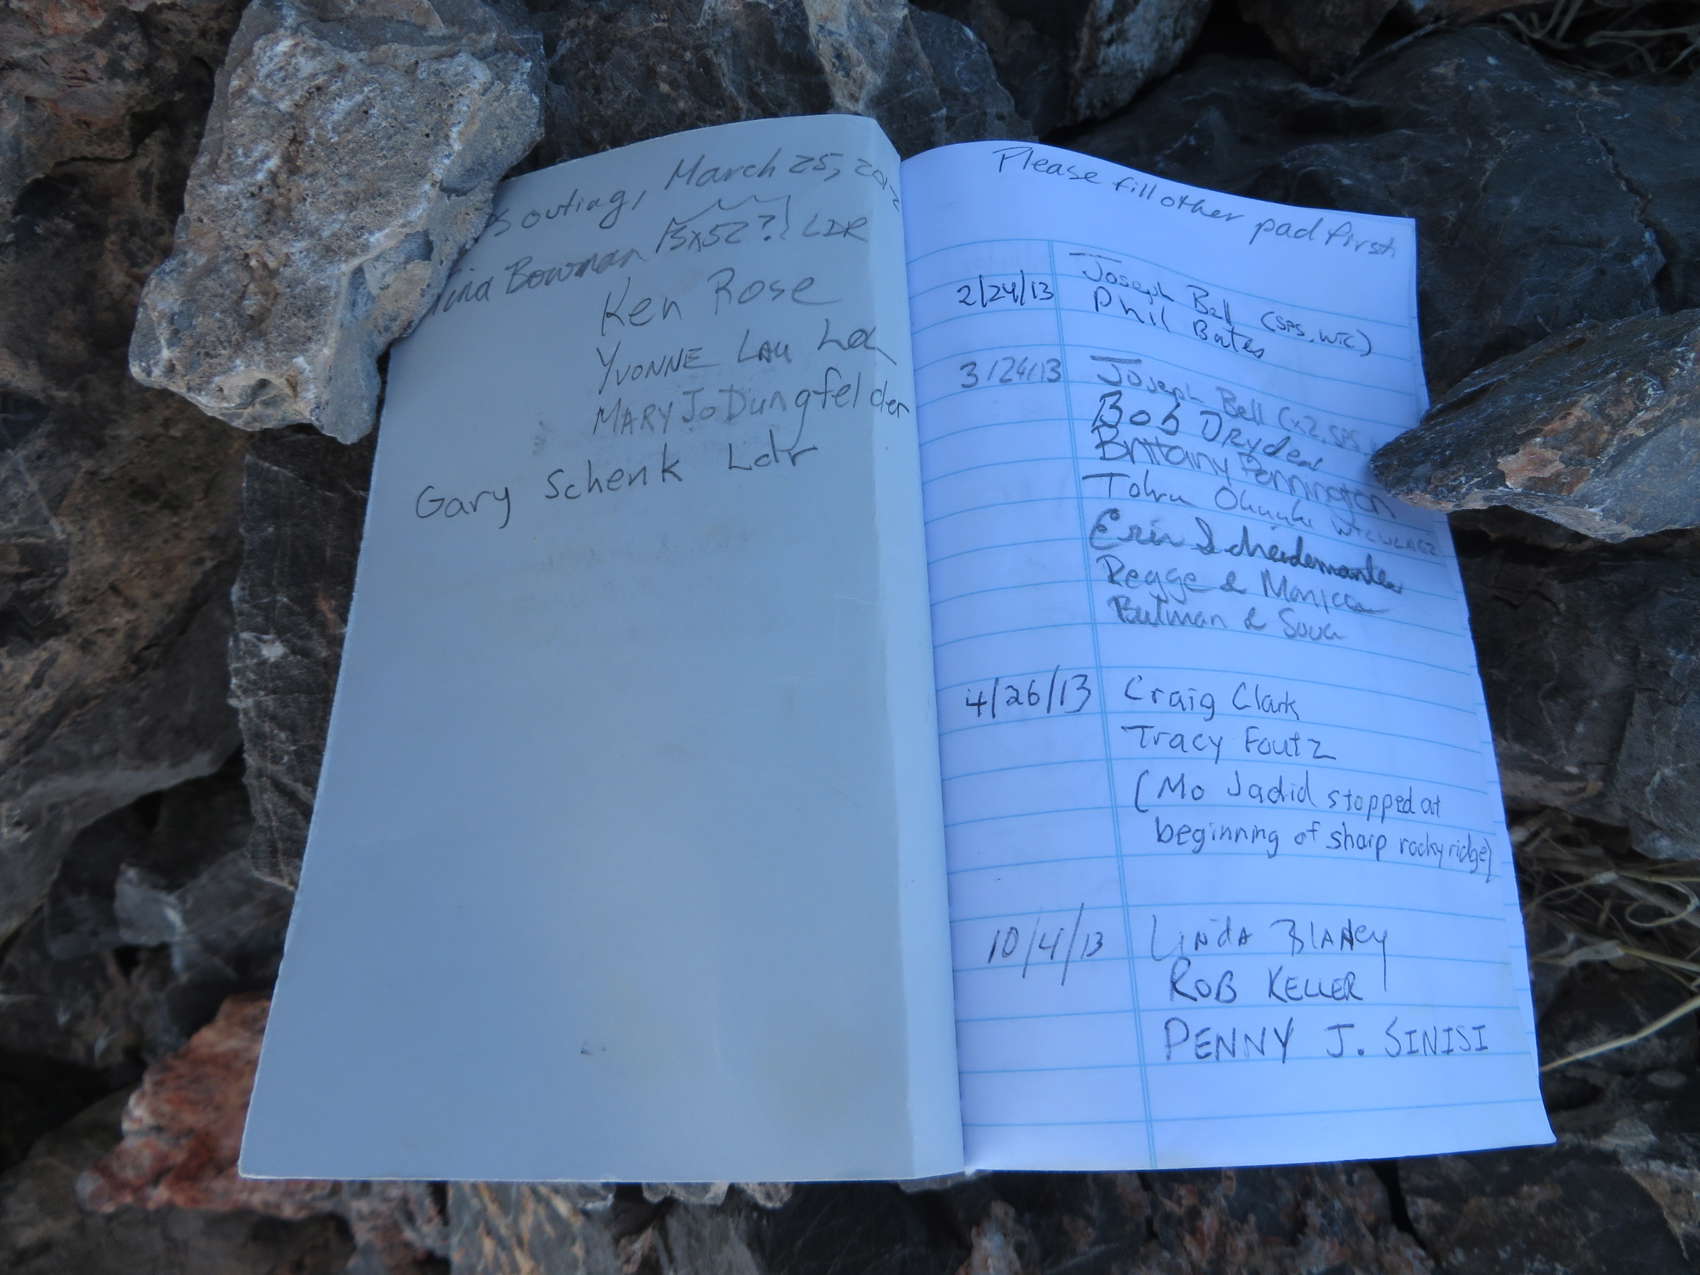 outing, March 25, 2012
Bowman LDR
Ken Rose
YVONNE LAU
MARY JO Dungfelder
Gary Schenk Ldr
Please fill other pad first
2/24/13 Joseph Bell (SPS, WTC)
Phil Bates
3/24/13 Joseph Bell (x2, SPS,
Bob Dryden
Brittany Pennington
Tohru
Erin
Regge & Monica
Butman & Sova
4/26/13 Craig Clark
Tracy Foutz
(Mo Jadid stopped at
beginning of sharp rocky ridge)
10/4/13 LINdA BLANey
ROB KELLER
PENNY J. SINISI